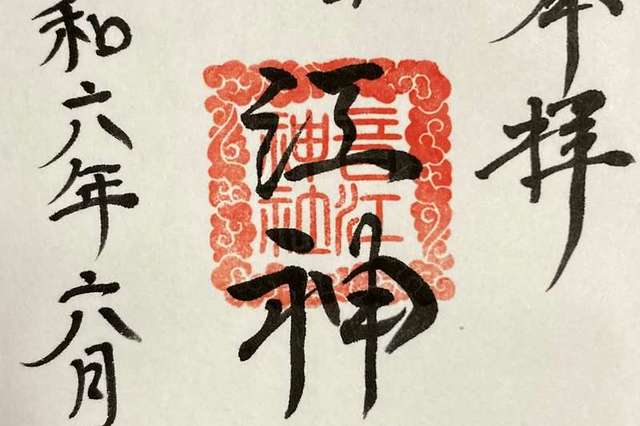 奉拝
江神
長江
神社
和六年六月